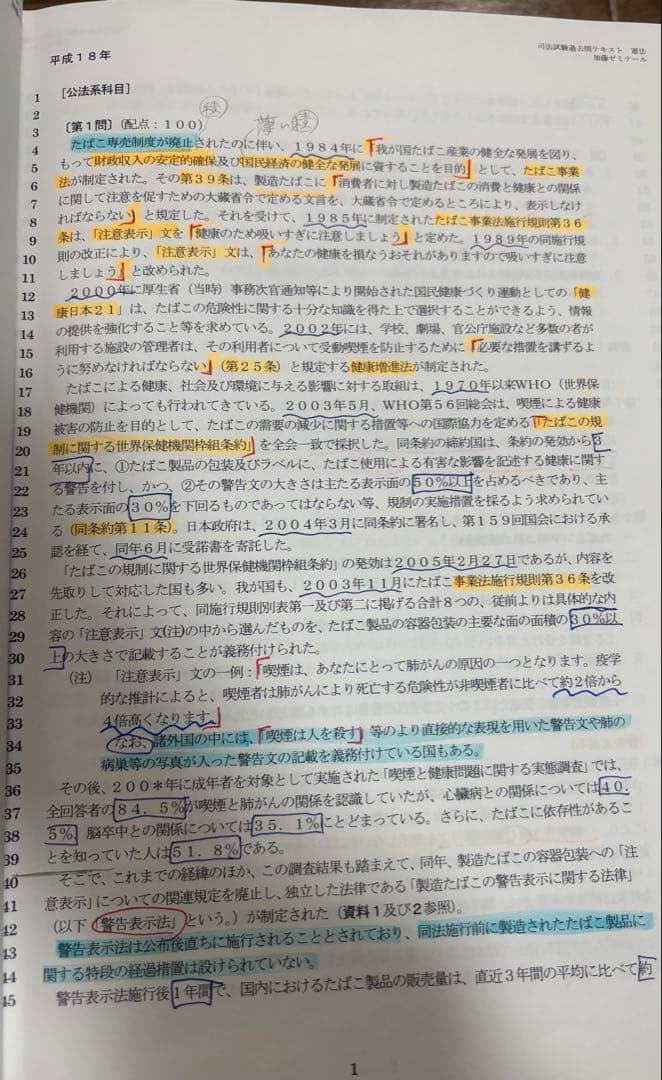 平成18年
司法試験過去問テキスト 憲法
加藤ゼミナール
1 [公法系科目]
2
3 [第1問](配点:100)
4 たばこ専売制度が廃止されたのに伴い、1984年に「我が国たばこ産業の健全な発展を図り、
5 もって財政収入の安定的確保及び国民経済の健全な発展に資することを目的」として、たばこ事業
6 法が制定された。その第39条は、製造たばこに「消費者に対し製造たばこの消費と健康との関係
7 に関して注意を促すための大蔵省令で定める文言を、大蔵省令で定めるところにより、表示しなけ
8 ればならない」と規定した。それを受けて、1985年に制定されたたばこ事業法施行規則第36
9 条は、「注意表示」文を「健康のため吸いすぎに注意しましょう」と定めた。1989年の同施行規
10 則の改正により、「注意表示」文は、「あなたの健康を損なうおそれがありますので吸いすぎに注意
11 しましょう」と改められた。
12 2000年に厚生省(当時)事務次官通知等により開始された国民健康づくり運動としての「健
13 康日本21」は、たばこの危険性に関する十分な知識を得た上で選択することができるよう、情報
14 の提供を強化すること等を求めている。2002年には、学校、劇場、官公庁施設など多数の者が
15 利用する施設の管理者は、その利用者について受動喫煙を防止するために「必要な措置を講ずるよ
16 うに努めなければならない」(第25条)と規定する健康増進法が制定された。
17 たばこによる健康、社会及び環境に与える影響に対する取組は、1970年以来WHO(世界保
18 健機関)によっても行われてきている。2003年5月、WHO第56回総会は、喫煙による健康
19 被害の防止を目的として、たばこの需要の減少に関する措置等への国際協力を定める「「たばこの規
20 制に関する世界保健機関枠組条約」を全会一致で採択した。同条約の締約国は、条約の発効から3
21 年以内に、①たばこ製品の包装及びラベルに、たばこ使用による有害な影響を記述する健康に関す
22 る警告を付し、かつ、②その警告文の大きさは主たる表示面の50%以上を占めるべきであり、主
23 たる表示面の30%を下回るものであってはならない等、規制の実施措置を採るよう求められてい
24 る(同条約第11条)。日本政府は、2004年3月に同条約に署名し、第159回国会における承
25 認を経て、同年6月に受諾書を寄託した。
26 「たばこの規制に関する世界保健機関枠組条約」の発効は2005年2月27日であるが、内容を
27 先取りして対応した国も多い。我が国も、2003年11月にたばこ事業法施行規則第36条を改
28 正した。それによって、同施行規則別表第一及び第二に掲げる合計8つの、従前よりは具体的な内
29 容の「注意表示」文(注)の中から選んだものを、たばこ製品の容器包装の主要な面の面積の30%以
30 上の大きさで記載することが義務付けられた。
31 (注) 「注意表示」文の一例:「喫煙は、あなたにとって肺がんの原因の一つとなります。疫学
32 的な推計によると、喫煙者は肺がんにより死亡する危険性が非喫煙者に比べて約2倍から
33 4倍高くなります。」
34 なお、諸外国の中には、「喫煙は人を殺す」等のより直接的な表現を用いた警告文や肺の
35 病巣等の写真が入った警告文の記載を義務付けている国もある。
36 その後、200*年に成年者を対象として実施された「喫煙と健康問題に関する実態調査」では、
37 全回答者の84.5%が喫煙と肺がんの関係を認識していたが、心臓病との関係については40.
38 5%、脳卒中との関係については35.1%にとどまっている。さらに、たばこに依存性があるこ
39 とを知っていた人は51.8%である。
40 そこで、これまでの経緯のほか、この調査結果も踏まえて、同年、製造たばこの容器包装への「注
41 意表示」についての関連規定を廃止し、独立した法律である「製造たばこの警告表示に関する法律」
42 (以下「警告表示法」という。)が制定された(資料1及び2参照)。
43 警告表示法は公布後直ちに施行されることとされており、同法施行前に製造されたたばこ製品に
44 関する特段の経過措置は設けられていない。
45 警告表示法施行後1年間で、国内におけるたばこ製品の販売量は、直近3年間の平均に比べて約
1